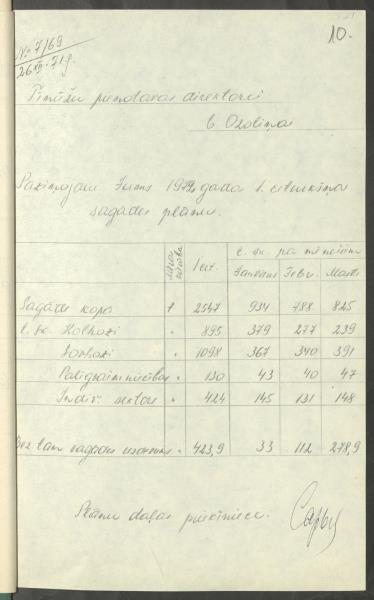 10.
No 7/69
26 XII. 71 g.
Tīnūžu pienotavas direktorei
b. Ozoliņai
Paziņojam Jums 1972. gada 1. ceturkšņa
sagādes plānu.
t. sk. pa mēnešiem
1 cet. Janvāris Febr. Marts
Sagāde kopā t 2547 934 788 825
t. sk. Kolhozi " 895 379 277 239
Sovhozi " 1098 367 340 391
Palīgsaimniecības " 130 43 40 47
Indiv. sektors " 424 145 131 148
Bez tam sagādes " 423,9 33 112 278,9
Plānu daļas priekšniece: